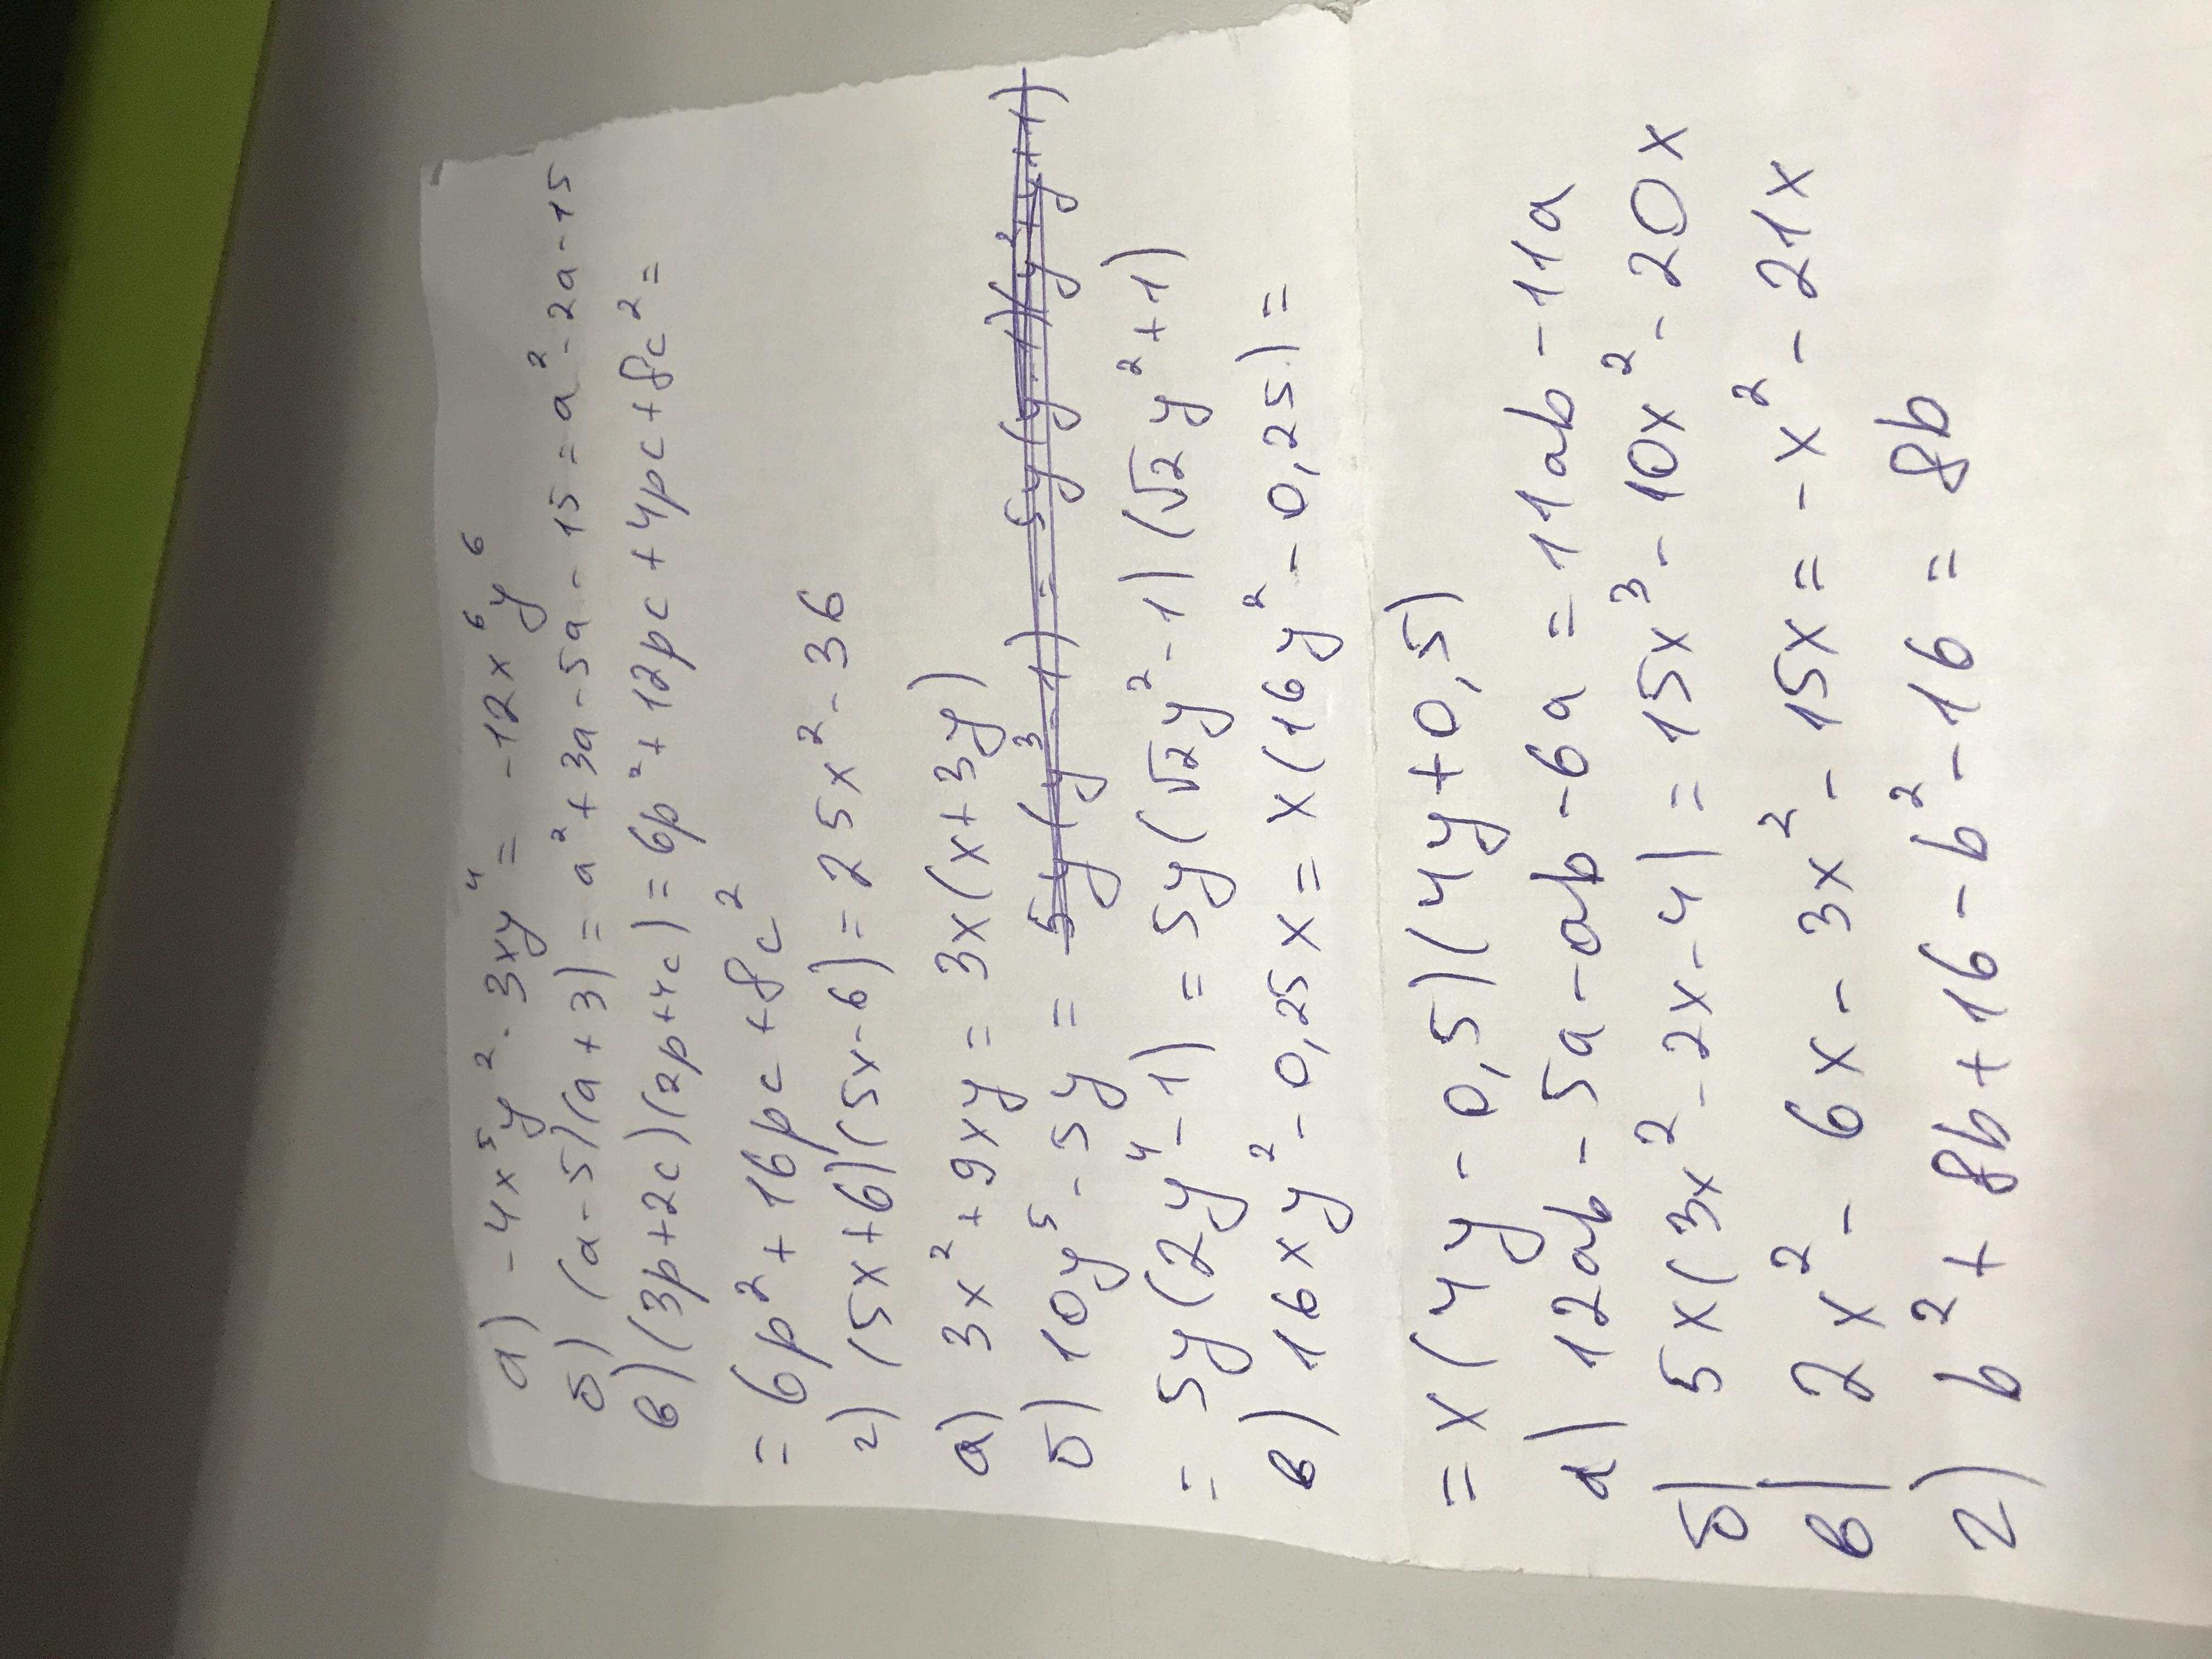 а) -4x⁵y² · 3xy⁴ = -12x⁶y⁶
б) (a-5)(a+3) = a²+3a-5a-15 = a²-2a-15
в) (3p+2c)(2p+4c) = 6p²+12pc+4pc+8c² =
= 6p²+16pc+8c²
г) (5x+6)(5x-6) = 25x²-36
а) 3x²+9xy = 3x(x+3y)
б) 10y⁵-5y = 5y(y³-1) = 5y(y-1)(y²+y+1)
= 5y(2y⁴-1) = 5y(√2y²-1)(√2y²+1)
в) 16xy²-0,25x = x(16y²-0,25) =
= x(4y-0,5)(4y+0,5)
а) 12ab-5a-ab-6a = 11ab-11a
б) 5x(3x²-2x-4) = 15x³-10x²-20x
в) 2x²-6x-3x²-15x = -x²-21x
г) b²+8b+16-b²-16 = 8b